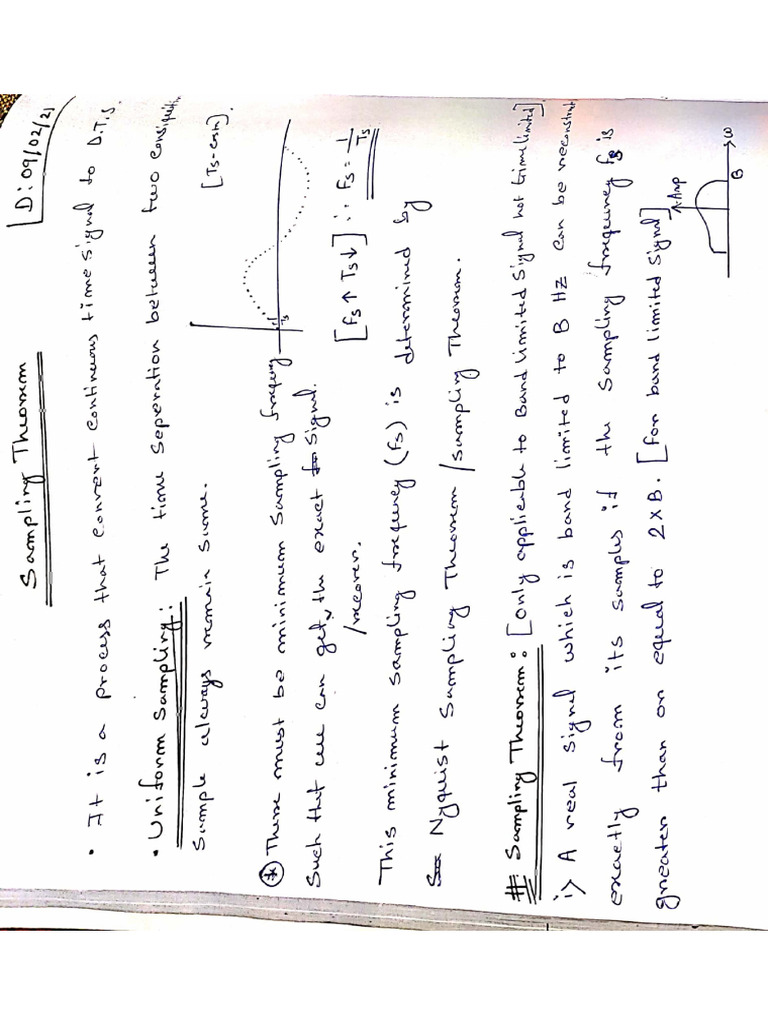 [D: 09/02/21
Sampling Theorem
• It is a process that convert continuous time signal to D.T.S.
• Uniform Sampling: The time seperation between two
Sample always remain same. [Ts-const].
Ts
* There must be minimum sampling frequency
Such that we can get the exact signal.
/recover.
[fs ↑ Ts↓] ∵ Fs = 1/Ts
This minimum sampling frequency (fs) is determined by
Nyquist Sampling Theorem / Sampling Theorem.
# Sampling Theorem: [Only applicable to Band limited Signal not time limited]
i> A real signal which is band limited to B Hz can be reconstruct
exactly from its samples if the sampling frequency fs is
greater than or equal to 2×B. [for band limited signal]
Amp
B
ω